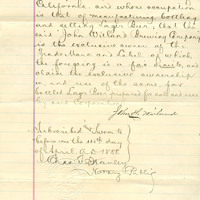 California, and whose occupation
is that of manufacturing bottling
and selling Lager Beer, that the
said "John Wieland Brewing Company"
is the exclusive owner of the
Trade-Mark and Label of which
the foregoing is a fac simile, and
claim the exclusive ownership
and use of the same, for
bottled Lager Beer prepared for sale and sold
by said Corporation.
John H. Wieland
Subscribed & Sworn to
before me this day
of April A.D. 1888
Notary Public